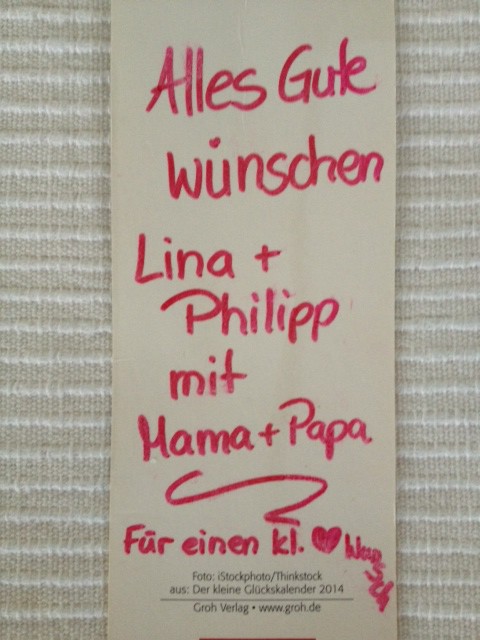 Alles Gute
wünschen
Lina +
Philipp
mit
Mama + Papa
Für einen kl. ♥ Wunsch
Foto: iStockphoto/Thinkstock
aus: Der kleine Glückskalender 2014
Groh Verlag • www.groh.de